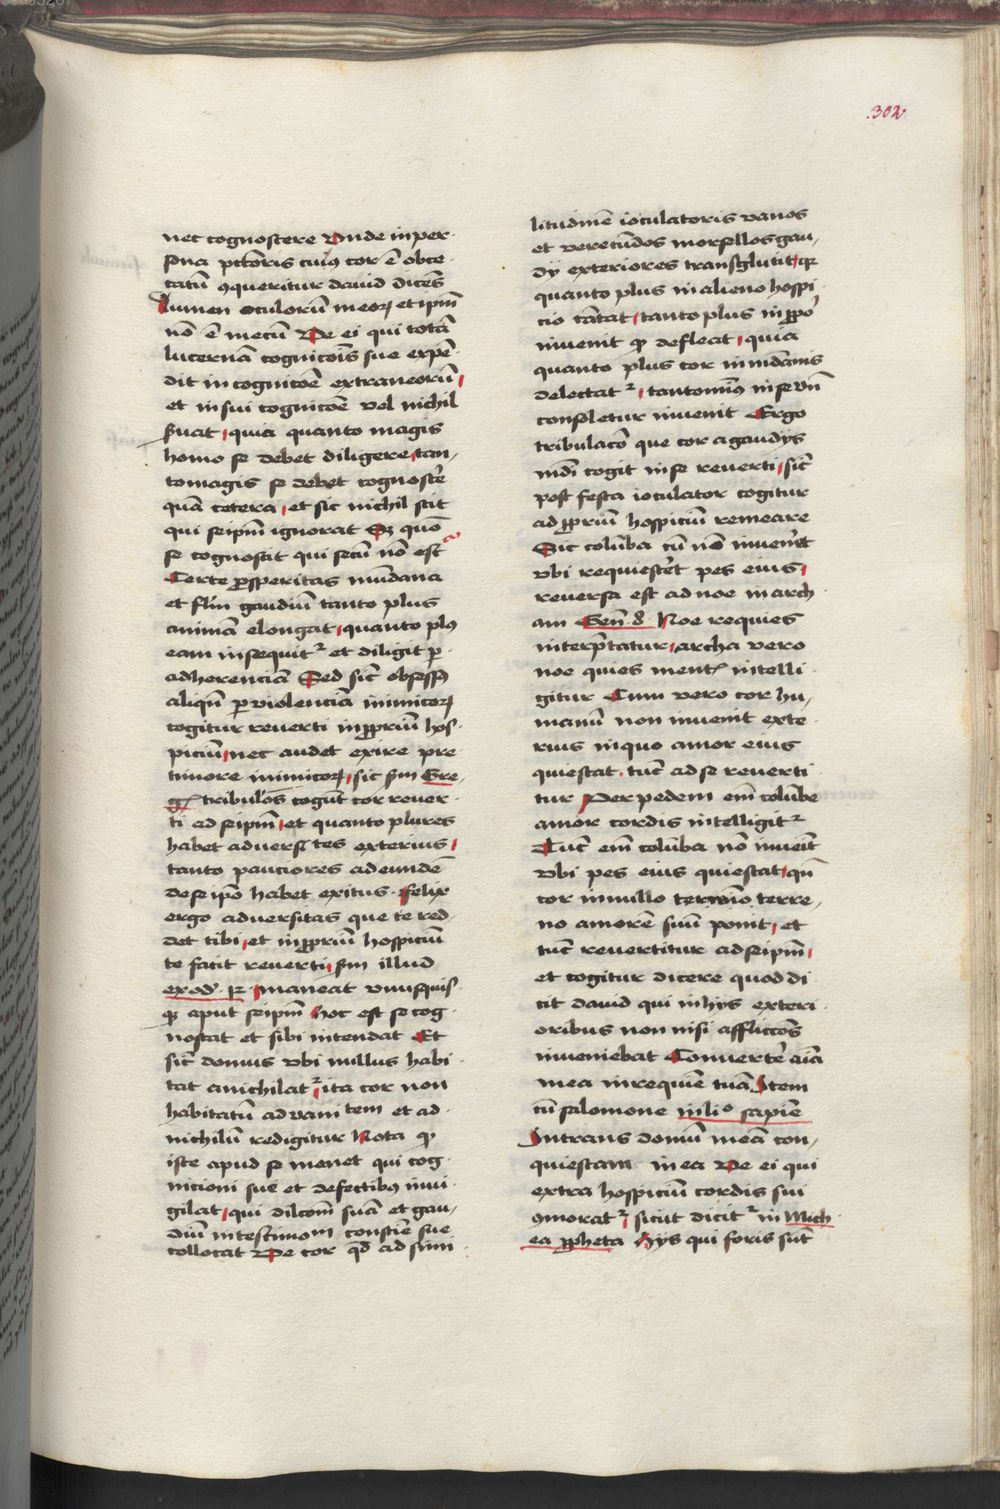 .302
nec cognoscere Vnde in per-
sona pctoris cuiꝰ cor ē obce-
catū ꝯqueritur dauid dicēs
Lumen oculorū meoꝝ et ipm̄
nō ē mecū Ve ei qui totā
lucernā cognicoīs sue expē-
dit in cognicoē extraneorū
et in sui cognicoē vel nichil
seruat quia quanto magis
homo se debet diligere tan-
tomagis se debet cognoscē
quā cetera et sic nichil scit
qui seipm̄ ignorat Sꝫ quō
se cognoscit qui secū nō est
Certe ꝓsperitas mūdana
et flīn gaudiū tanto plus
animā elongat quanto plꝰ
eam insequitʳ et diligit ꝑ
adherenciā Sed sic̄ obsessꝰ
aliqn̄ ꝑ violenciā inimicoꝝ
cogitur reuerti in ꝓpriū hos-
piciū nec audet exire pre
timore inimicoꝝ sic scdm̄ Gre-
g. tribulōs cogūt cor reuer-
ti ad seipm̄ et quanto plures
habet aduersi tes exterius
tanto pauciores ad eundē
de se ipō habet exitus . Felix
ergo aduersitas que te red-
det tibi et in ꝓpriū hospiciū
te facit reuerti scdm̄ illud
exod. Maneat vnusquis-
qꝫ aput seipm̄ hoc est se cog-
noscat et sibi intendat Et
sic̄ domus vbi nullus habi-
tat anichilatʳ ita cor non
habitatū ad vani tem et ad
nichilū redigitur Nota ꝙ
iste apud se manet qui cog-
nicioni sue et defectibꝰ inui-
gilat qui dilcōm suā et gau-
diū intestinom consciē sue
collocat Ve cor qd̄ ad simi-
litudinē ioculatoris vanos
et verecūdos morsellos gau-
dij exteriores transglutit qꝛ
quanto plus in alieno hospi-
cio cātat tanto plus in ꝓpō
inuenit ꝙ defleat quia
quanto plus cor in mūdanis
delectatʳ tantominꝰ in se vn̄
consoletur inuenit Ergo
tribulacō que cor a gaudijs
mūdi cogit in se reuerti sic̄
post festa ioculator cogitur
ad ꝓpriū hospiciū remeare
Sic colūba cū nō inuenīret
vbi requiesceret pes eius
reuersa est ad noe in arch-
am Gen̄ 8 Noe requies
interp̄tatur archa vero
noe quies mentꝭ intelli-
gitur Cum vero cor hu-
manū non inuenit exte-
rius in quo amor eius
quiescat tūc ad se reuerti-
tur Per pedem em̄ colūbe
amor cordis intelligitʳ
Tūc em̄ colūba nō inueīt
vbi pes eius quiescat qn̄
cor in nullo termīo terre-
no amorē suū ponit et
tūc reuertitur ad seipm̄
et cogitur dicere quod di-
cit dauid qui in hijs exteri-
oribus non nisi afflictōs
inueniebat Conuertē aīa
mea in requiē tuā Item
cū salomone in liº sapiē
Intrans domū meā con-
quiescam in ea Ve ei qui
extra hospiciū cordis sui
ꝯmoratʳ sicut dicitʳ in Mich-
ea ꝓpheta hijs qui foris sūt